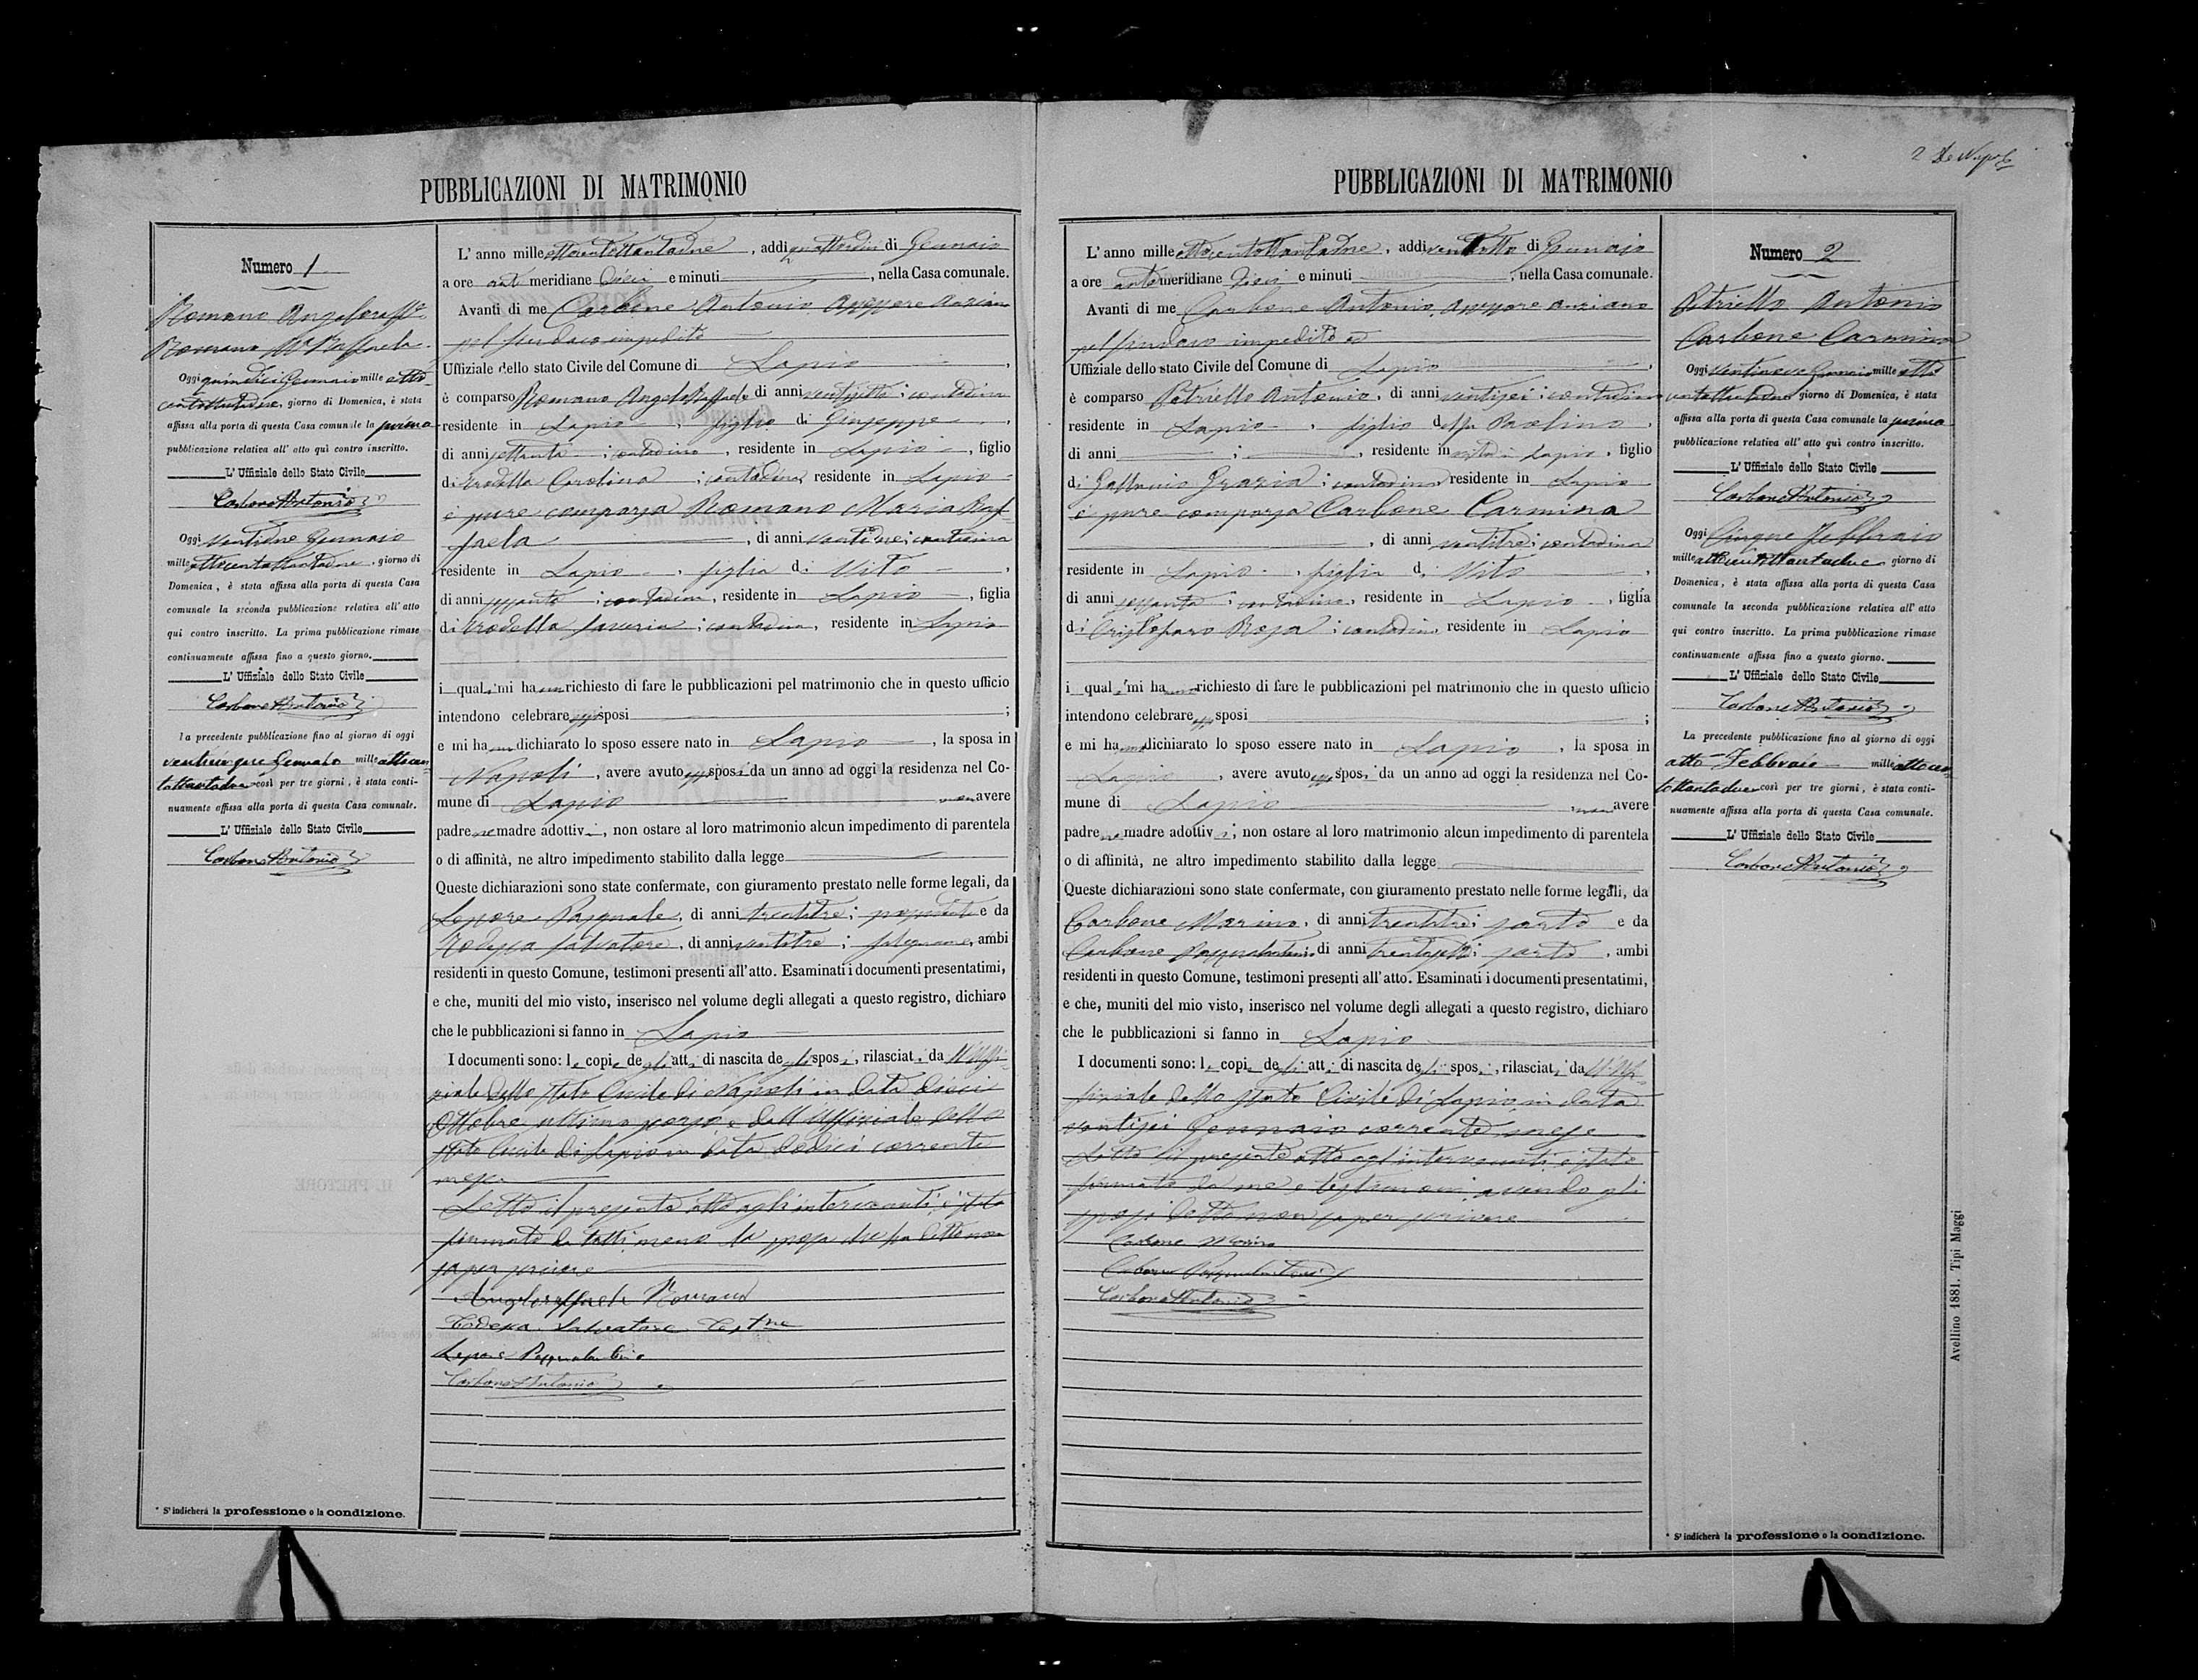 2 De Napoli
PUBBLICAZIONI DI MATRIMONIO
Numero 1
Romano Angeloraffle
Romano Ma Raffaela
Oggi quindici Gennaio mille otto
centottantadue, giorno di Domenica, è stata
affissa alla porta di questa Casa comunale la prima
pubblicazione relativa all' atto quì contro inscritto.
L' Uffiziale dello Stato Civile
Carbone Antonio
Oggi ventidue Gennaio
mille ottocentottantadue, giorno di
Domenica, è stata affissa alla porta di questa Casa
comunale la seconda pubblicazione relativa all' atto
qui contro inscritto. La prima pubblicazione rimase
continuamente affissa fino a questo giorno.
L' Uffiziale dello Stato Civile
Carbone Antonio
La precedente pubblicazione fino al giorno di oggi
venticinque Gennaio mille ottocen
tottantadue così per tre giorni, è stata conti-
nuamente affissa alla porta di questa Casa comunale.
L' Uffiziale dello Stato Civile
Carbone Antonio
* S' indicherà la professione o la condizione.
L' anno mille ottocentottantadue, addi quattordici di Gennaio
a ore anti meridiane dieci e minuti , nella Casa comunale.
Avanti di me Carbone Antonio Assessore Anziano
pel Sindaco impedito
Uffiziale dello stato Civile del Comune di Lapio,
è comparso Romano AngeloRaffaele di anni ventisette; contadino
residente in Lapio, figlio di Giuseppe,
di anni settanta; contadino, residente in Lapio, figlio
di Trodella Carolina; contadina, residente in Lapio
è pure comparsa Romano Maria Raf
faela, di anni ventidue; contadina
residente in Lapio, figlia di Vito,
di anni sessanta; contadino, residente in Lapio, figlia
di Trodella Saveria; contadina, residente in Lapio
i quali mi hanno richiesto di fare le pubblicazioni pel matrimonio che in questo ufficio
intendono celebrare essi sposi ;
e mi hanno dichiarato lo sposo essere nato in Lapio, la sposa in
Napoli, avere avuto essi sposi da un anno ad oggi la residenza nel Co-
mune di Lapio non avere
padre ne madre adottivi, non ostare al loro matrimonio alcun impedimento di parentela
o di affinità, ne altro impedimento stabilito dalla legge
Queste dichiarazioni sono state confermate, con giuramento prestato nelle forme legali, da
Lepore Pasquale, di anni trentatre; possidente e da
Todesca Salvatore, di anni ventitre; falegname, ambi
residenti in questo Comune, testimoni presenti all' atto. Esaminati i documenti presentatimi,
e che, muniti del mio visto, inserisco nel volume degli allegati a questo registro, dichiaro
che le pubblicazioni si fanno in Lapio
I documenti sono: le copie degli atti di nascita degli sposi, rilasciati da ll'Uffi-
ziale dello stato Civile di Napoli in data dieci
Ottobre ultimo scorso e dall'Uffiziale dello
stato Civile di Lapio in data dodici corrente
mese
Letto il presente atto agli intervenuti, è stato
firmato da tutti meno la sposa che ha detto non
saper scrivere
Angeloraffaele Romano
Todesca Salvatore Testne
Lepore Pasqualantonio
Carbone Antonio
PUBBLICAZIONI DI MATRIMONIO
L' anno mille ottocentottantadue, addi ventotto di Gennaio
a ore anti meridiane dieci e minuti , nella Casa comunale.
Avanti di me Carbone Antonio, Assessore Anziano
pel Sindaco impedito
Uffiziale dello stato Civile del Comune di Lapio,
è comparso Petriello Antonio, di anni ventisei; contadino
residente in Lapio, figlio del fu Paolino,
di anni ; , residente in vita in Lapio, figlio
di Grazia; contadina residente in Lapio
è pure comparsa Carbone Carmina
, di anni ventitre; contadina
residente in Lapio, figlia di Vito,
di anni sessanta; contadino, residente in Lapio, figlia
di Cristofaro Rosa; contadina, residente in Lapio
i quali mi hanno richiesto di fare le pubblicazioni pel matrimonio che in questo ufficio
intendono celebrare essi sposi ;
e mi hanno dichiarato lo sposo essere nato in Lapio, la sposa in
Lapio, avere avuto essi sposi da un anno ad oggi la residenza nel Co-
mune di Lapio, non avere
padre ne madre adottivi, non ostare al loro matrimonio alcun impedimento di parentela
o di affinità, ne altro impedimento stabilito dalla legge
Queste dichiarazioni sono state confermate, con giuramento prestato nelle forme legali, da
Carbone Marino, di anni trentatre; sarto e da
Carbone Pasqualantonio di anni trentasette; sarto, ambi
residenti in questo Comune, testimoni presenti all' atto. Esaminati i documenti presentatimi,
e che, muniti del mio visto, inserisco nel volume degli allegati a questo registro, dichiaro
che le pubblicazioni si fanno in Lapio
I documenti sono: le copie degli atti di nascita degli sposi, rilasciati da ll'Uf-
fiziale dello stato Civile di Lapio in data
ventisei Gennaio corrente mese
Letto il presente atto agl'intervenuti è stato
firmato da me e testimoni avendo gli
sposi detto non saper scrivere
Carbone Marino
Carbone Pasqualantonio
Carbone Antonio
Numero 2
Petriello Antonio
Carbone Carmina
Oggi ventinove Gennaio mille otto
centottantadue giorno di Domenica, è stata
affissa alla porta di questa Casa comunale la prima
pubblicazione relativa all' atto quì contro inscritto.
L' Uffiziale dello Stato Civile
Carbone Antonio
Oggi Cinque Febbraio
mille ottocentottantadue giorno di
Domenica, è stata affissa alla porta di questa Casa
comunale la seconda pubblicazione relativa all' atto
qui contro inscritto. La prima pubblicazione rimase
continuamente affissa fino a questo giorno.
L' Uffiziale dello Stato Civile
Carbone Antonio
La precedente pubblicazione fino al giorno di oggi
otto Febbraio mille ottocen
tottantadue così per tre giorni, è stata conti-
nuamente affissa alla porta di questa Casa comunale.
L' Uffiziale dello Stato Civile
Carbone Antonio
* S' indicherà la professione o la condizione.
Avellino 1881. Tipi Maggi